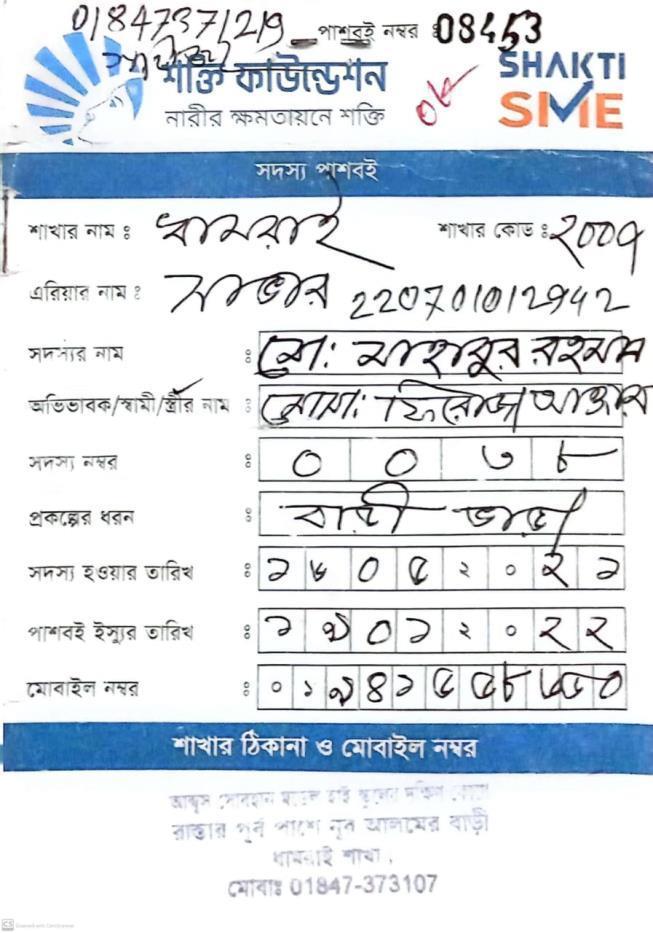 01847371219 পাশবই নম্বর : 08453
শক্তি ফাউন্ডেশন
নারীর ক্ষমতায়নে শক্তি
SHAKTI
SME
সদস্য পাশবই
শাখার নাম : ধামরাই শাখার কোড : ২০০৭
এরিয়ার নাম : সাভার 220701012942
সদস্যর নাম : মো: মাহাবুর রহমান
অভিভাবক/স্বামী/স্ত্রীর নাম : মোসা: ফিরোজা আক্তার
সদস্য নম্বর : ০ ০ ৩ ৮
প্রকল্পের ধরন : বাড়ী ভাড়া
সদস্য হওয়ার তারিখ : ১ ৬ ০ ৫ ২ ০ ২ ১
পাশবই ইস্যুর তারিখ : ১ ৯ ০ ১ ২ ০ ২ ২
মোবাইল নম্বর : ০ ১ ৯ ৪ ১ ৫ ৫ ৮ ৬ ৫ ০
শাখার ঠিকানা ও মোবাইল নম্বর
আব্দুস সোবহান মডেল হাই স্কুলের দক্ষিণ
রাস্তার পূর্ব পাশে নুর আলমের বাড়ী
ধামরাই শাখা,
মোবাঃ 01847-373107
CS Scanned with CamScanner